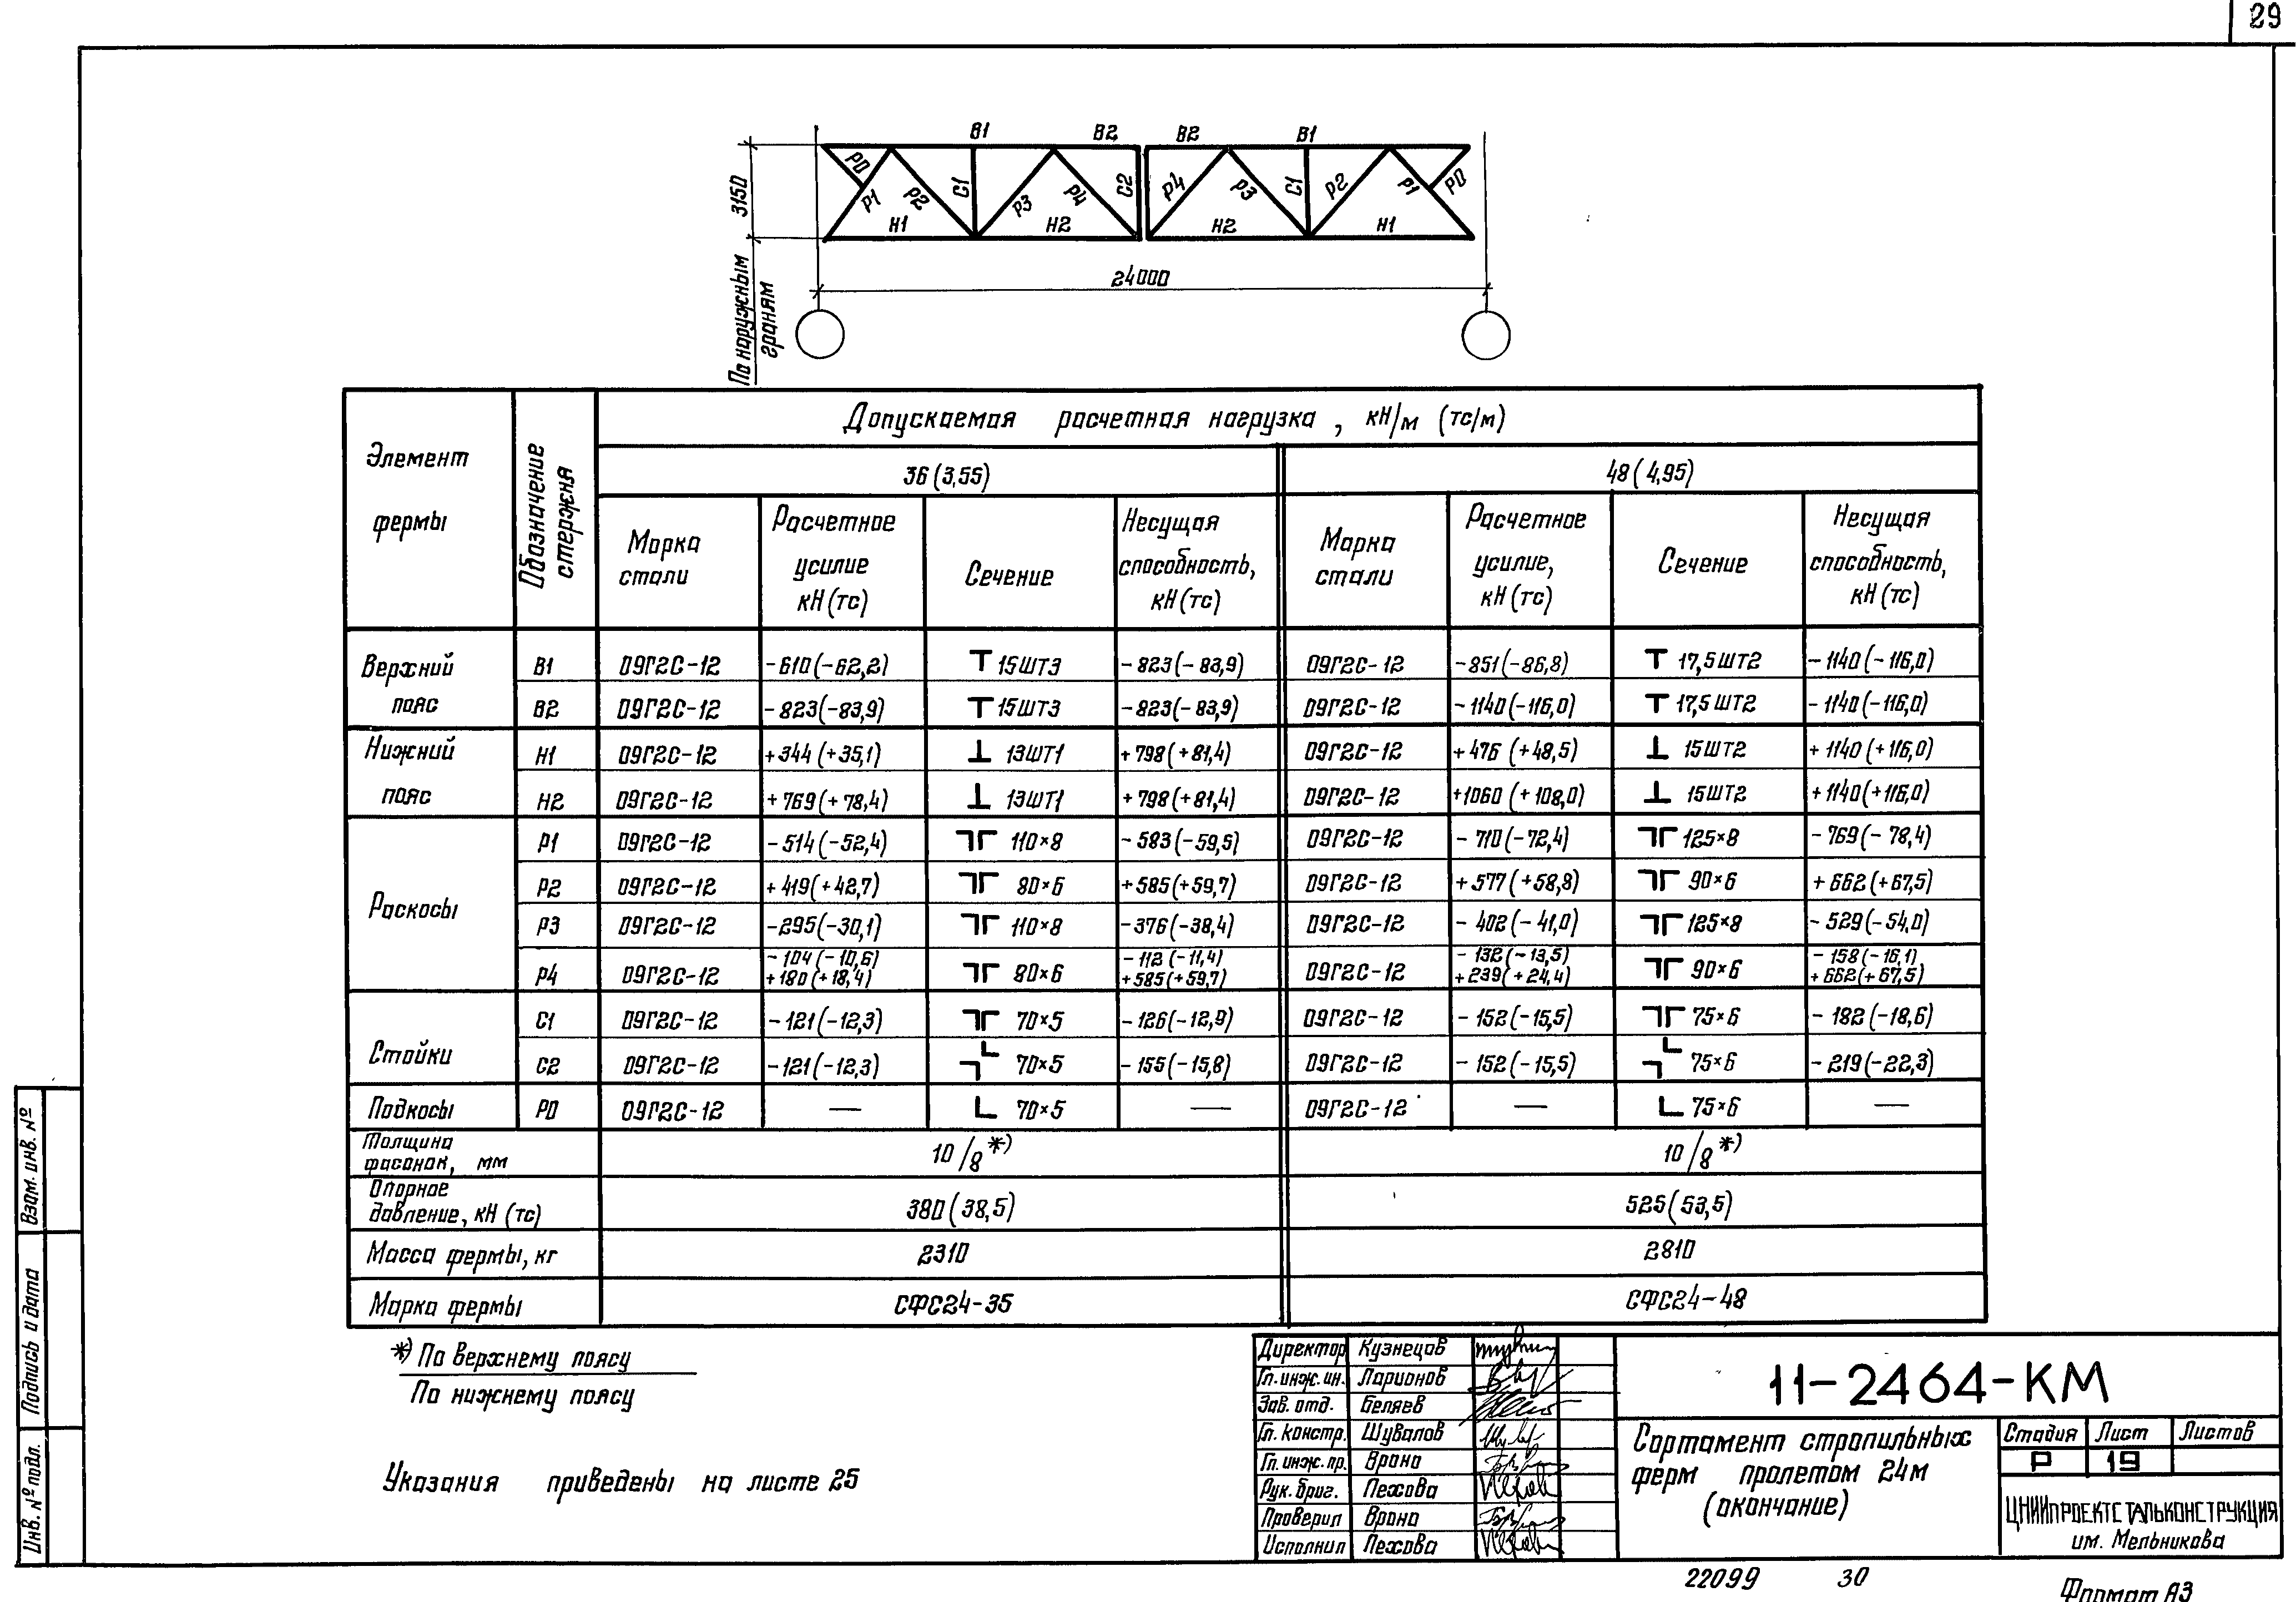 29
В1 В2 В2 В1
Р0 Р1 Р2 С1 Р3 Р4 С2 Р4 Р3 С1 Р2 Р1 Р0
Н1 Н2 Н2 Н1
3150
По наружным
граням
24000
Элемент фермы
Обозначение стержня
Допускаемая расчетная нагрузка, кН/м (тс/м)
36 (3,55) 48 (4,95)
Марка стали Расчетное усилие кН (тс) Сечение Несущая способность, кН (тс) Марка стали Расчетное усилие, кН (тс) Сечение Несущая способность, кН (тс)
Верхний пояс
В1 09Г2С-12 -610 (-62,2) 15ШТ3 -823 (-83,9) 09Г2С-12 -851 (-86,8) 17,5ШТ2 -1140 (-116,0)
В2 09Г2С-12 -823 (-83,9) 15ШТ3 -823 (-83,9) 09Г2С-12 -1140 (-116,0) 17,5ШТ2 -1140 (-116,0)
Нижний пояс
Н1 09Г2С-12 +344 (+35,1) 13ШТ1 +798 (+81,4) 09Г2С-12 +476 (+48,5) 15ШТ2 +1140 (+116,0)
Н2 09Г2С-12 +769 (+78,4) 13ШТ1 +798 (+81,4) 09Г2С-12 +1060 (+108,0) 15ШТ2 +1140 (+116,0)
Раскосы
Р1 09Г2С-12 -514 (-52,4) 110×8 -583 (-59,5) 09Г2С-12 -710 (-72,4) 125×8 -769 (-78,4)
Р2 09Г2С-12 +419 (+42,7) 80×6 +585 (+59,7) 09Г2С-12 +577 (+58,8) 90×6 +662 (+67,5)
Р3 09Г2С-12 -295 (-30,1) 110×8 -376 (-38,4) 09Г2С-12 -402 (-41,0) 125×8 -529 (-54,0)
Р4 09Г2С-12 -104 (-10,6) +180 (+18,4) 80×6 -112 (-11,4) +585 (+59,7) 09Г2С-12 -132 (-13,5) +239 (+24,4) 90×6 -158 (-16,1) +662 (+67,5)
Стойки
С1 09Г2С-12 -121 (-12,3) 70×5 -126 (-12,9) 09Г2С-12 -152 (-15,5) 75×6 -182 (-18,6)
С2 09Г2С-12 -121 (-12,3) 70×5 -155 (-15,8) 09Г2С-12 -152 (-15,5) 75×6 -219 (-22,3)
Подкосы Р0 09Г2С-12 — 70×5 — 09Г2С-12 — 75×6 —
Толщина фасонок, мм 10/8 *) 10/8 *)
Опорное давление, кН (тс) 380 (38,5) 525 (53,5)
Масса фермы, кг 2310 2810
Марка фермы СФС24-35 СФС24-48
*) По верхнему поясу
По нижнему поясу
Указания приведены на листе 25
Директор Кузнецов
Гл. инж. ин. Ларионов
Зав. отд. Беляев
Гл. констр. Шувалов
Гл. инж. пр. Врона
Рук. бриг. Пехова
Проверил Врона
Исполнил Пехова
11-2464-КМ
Сортамент стропильных
ферм пролетом 24м
(окончание)
Стадия Лист Листов
Р 19
ЦНИИПРОЕКТСТАЛЬКОНСТРУКЦИЯ
им. Мельникова
Взам. инв. №
Подпись и дата
Инв. № подл.
22099 30
Формат А3